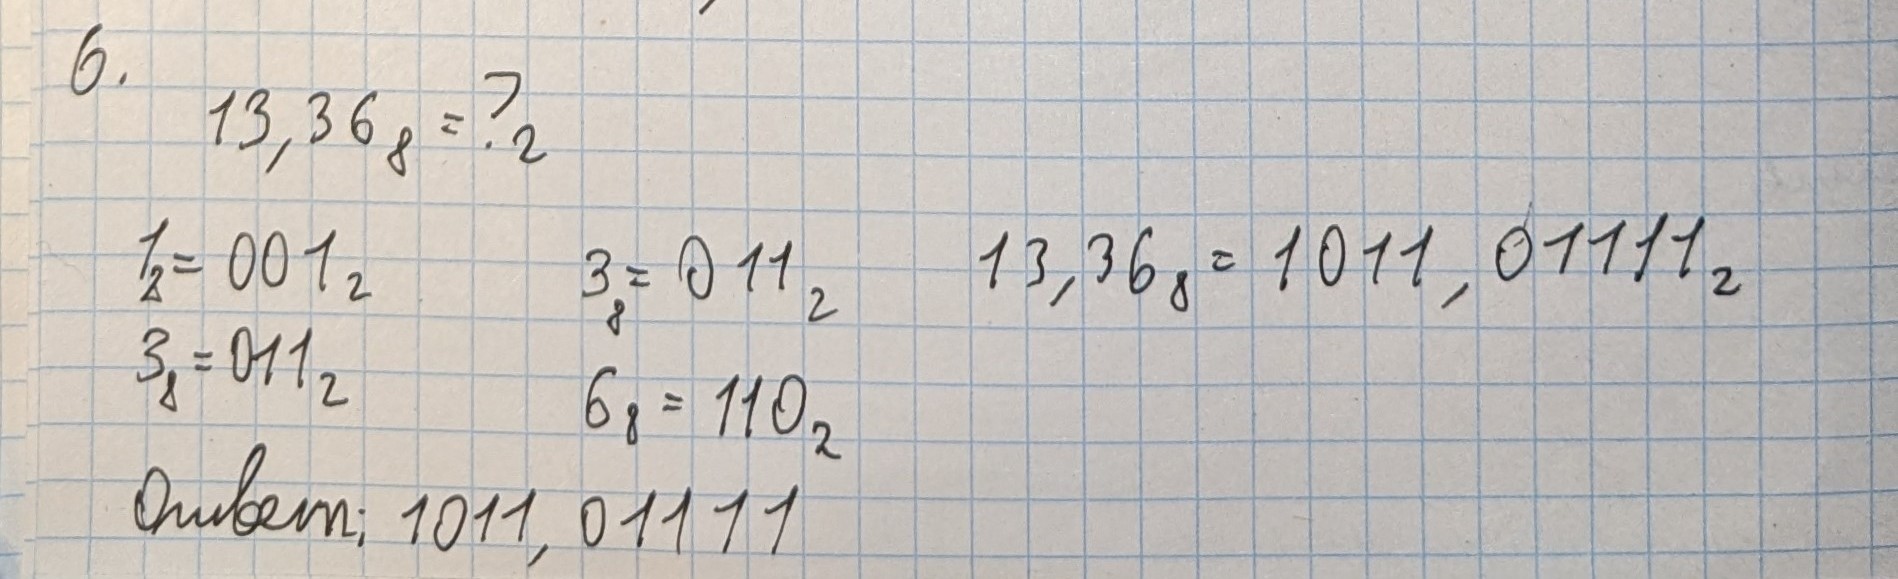 6.
13,36₈ = ?₂
1₈ = 001₂
3₈ = 011₂
3₈ = 011₂
6₈ = 110₂
13,36₈ = 1011,01111₂
Ответ: 1011,01111